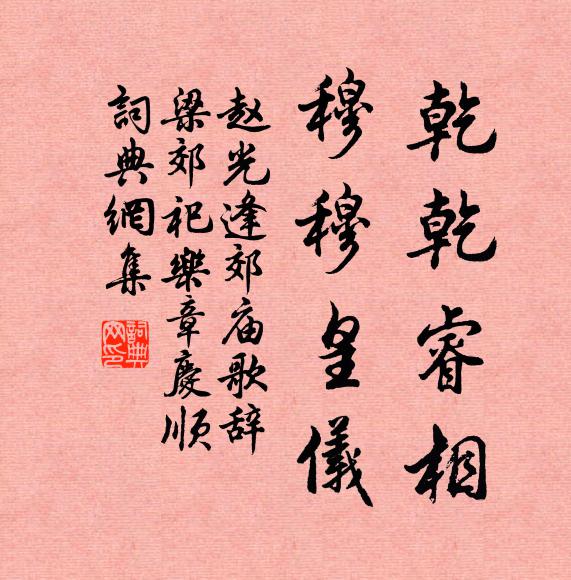 乾乾睿相
穆穆皇儀
赵光逢郊庙歌辞
梁郊祀樂章慶順
詞典網集
詞典网印